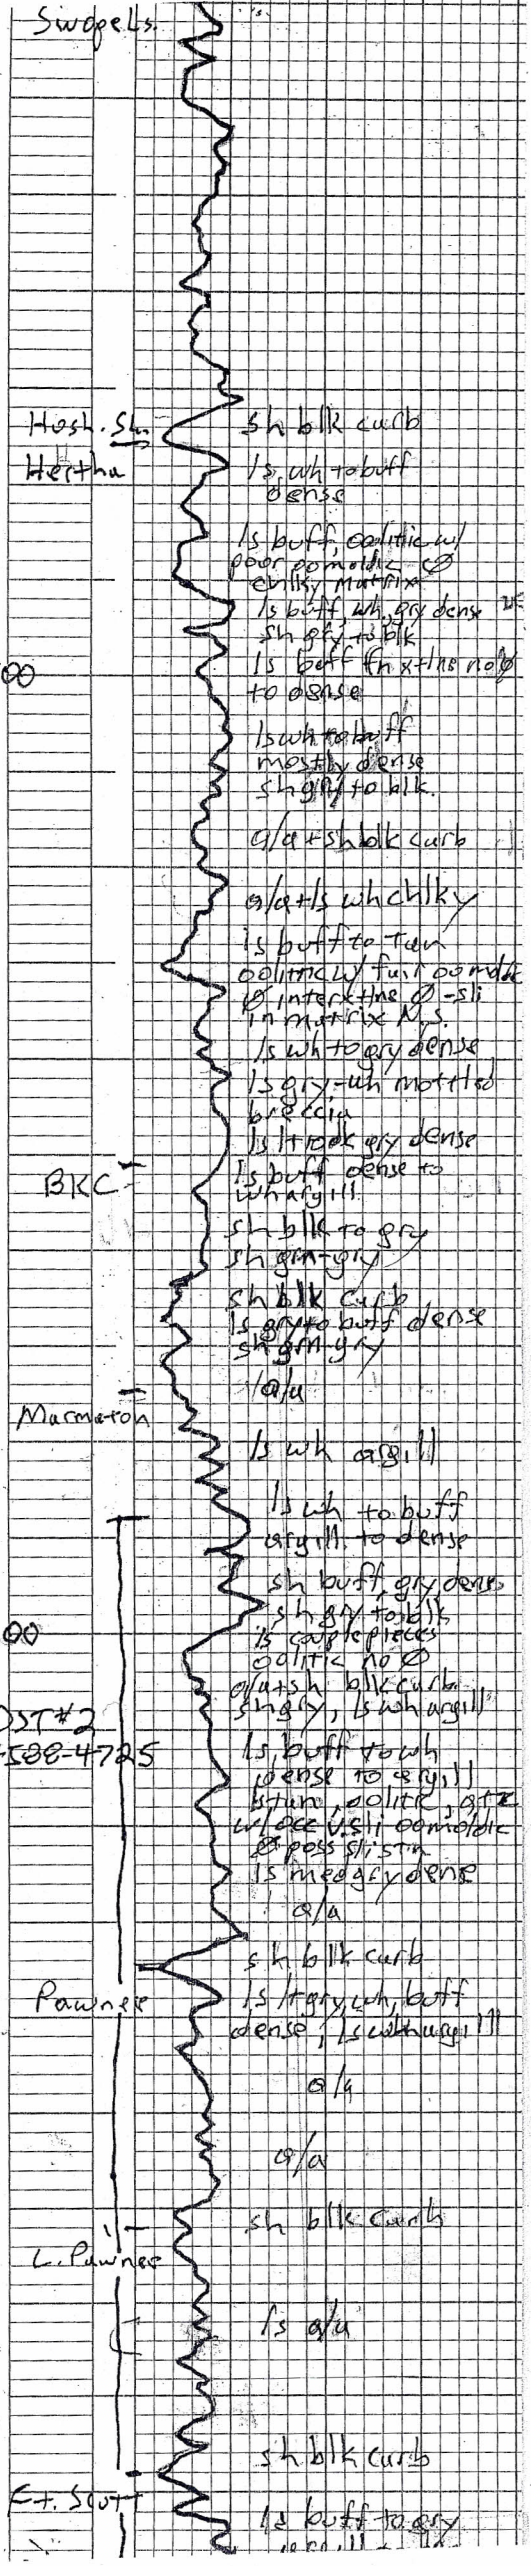 Swopells.
Hush. Sh.
sh blk carb
Hertha
ls, wh to buff
dense
ls buff, oolitic w/
poor oomoldic Ø
chlky matrix
ls buff, wh, gry dense
sh gry to blk
00
ls buff fn xtlne no Ø
to dense
ls wh to buff
mostly dense
sh gry to blk.
a/a + sh blk carb
a/a + ls wh chlky
ls buff to tan
oolitic w/ fair oomoldic
Ø interxtlne Ø - sli
in matrix N.S.
ls wh to gry dense,
ls gry-wh mottled
breccia
ls lt to dk gry dense
BKC
ls buff dense to
wh argill.
sh blk to gry
sh grn-gry
sh blk carb
ls gry to buff dense
sh grn-gry
a/a
Marmaton
ls wh argill
ls wh to buff
argill. to dense
sh buff, gry, dense
sh gry to blk
00
ls couple pieces
oolitic no Ø
a/a + sh blk carb
sh gry, ls wh argill
DST #2
-588-4725
ls, buff to wh
dense to argill
ls tan, oolitic, qtz
w/ occ v. sli oomoldic
Ø poss sli stn
ls med gry dense
a/a
sh blk carb
Pawnee
ls lt gry, wh, buff
dense, ls wh argill
a/a
a/a
sh blk carb
L. Pawnee
ls a/a
sh blk carb
Ft. Scott
ls buff to gry